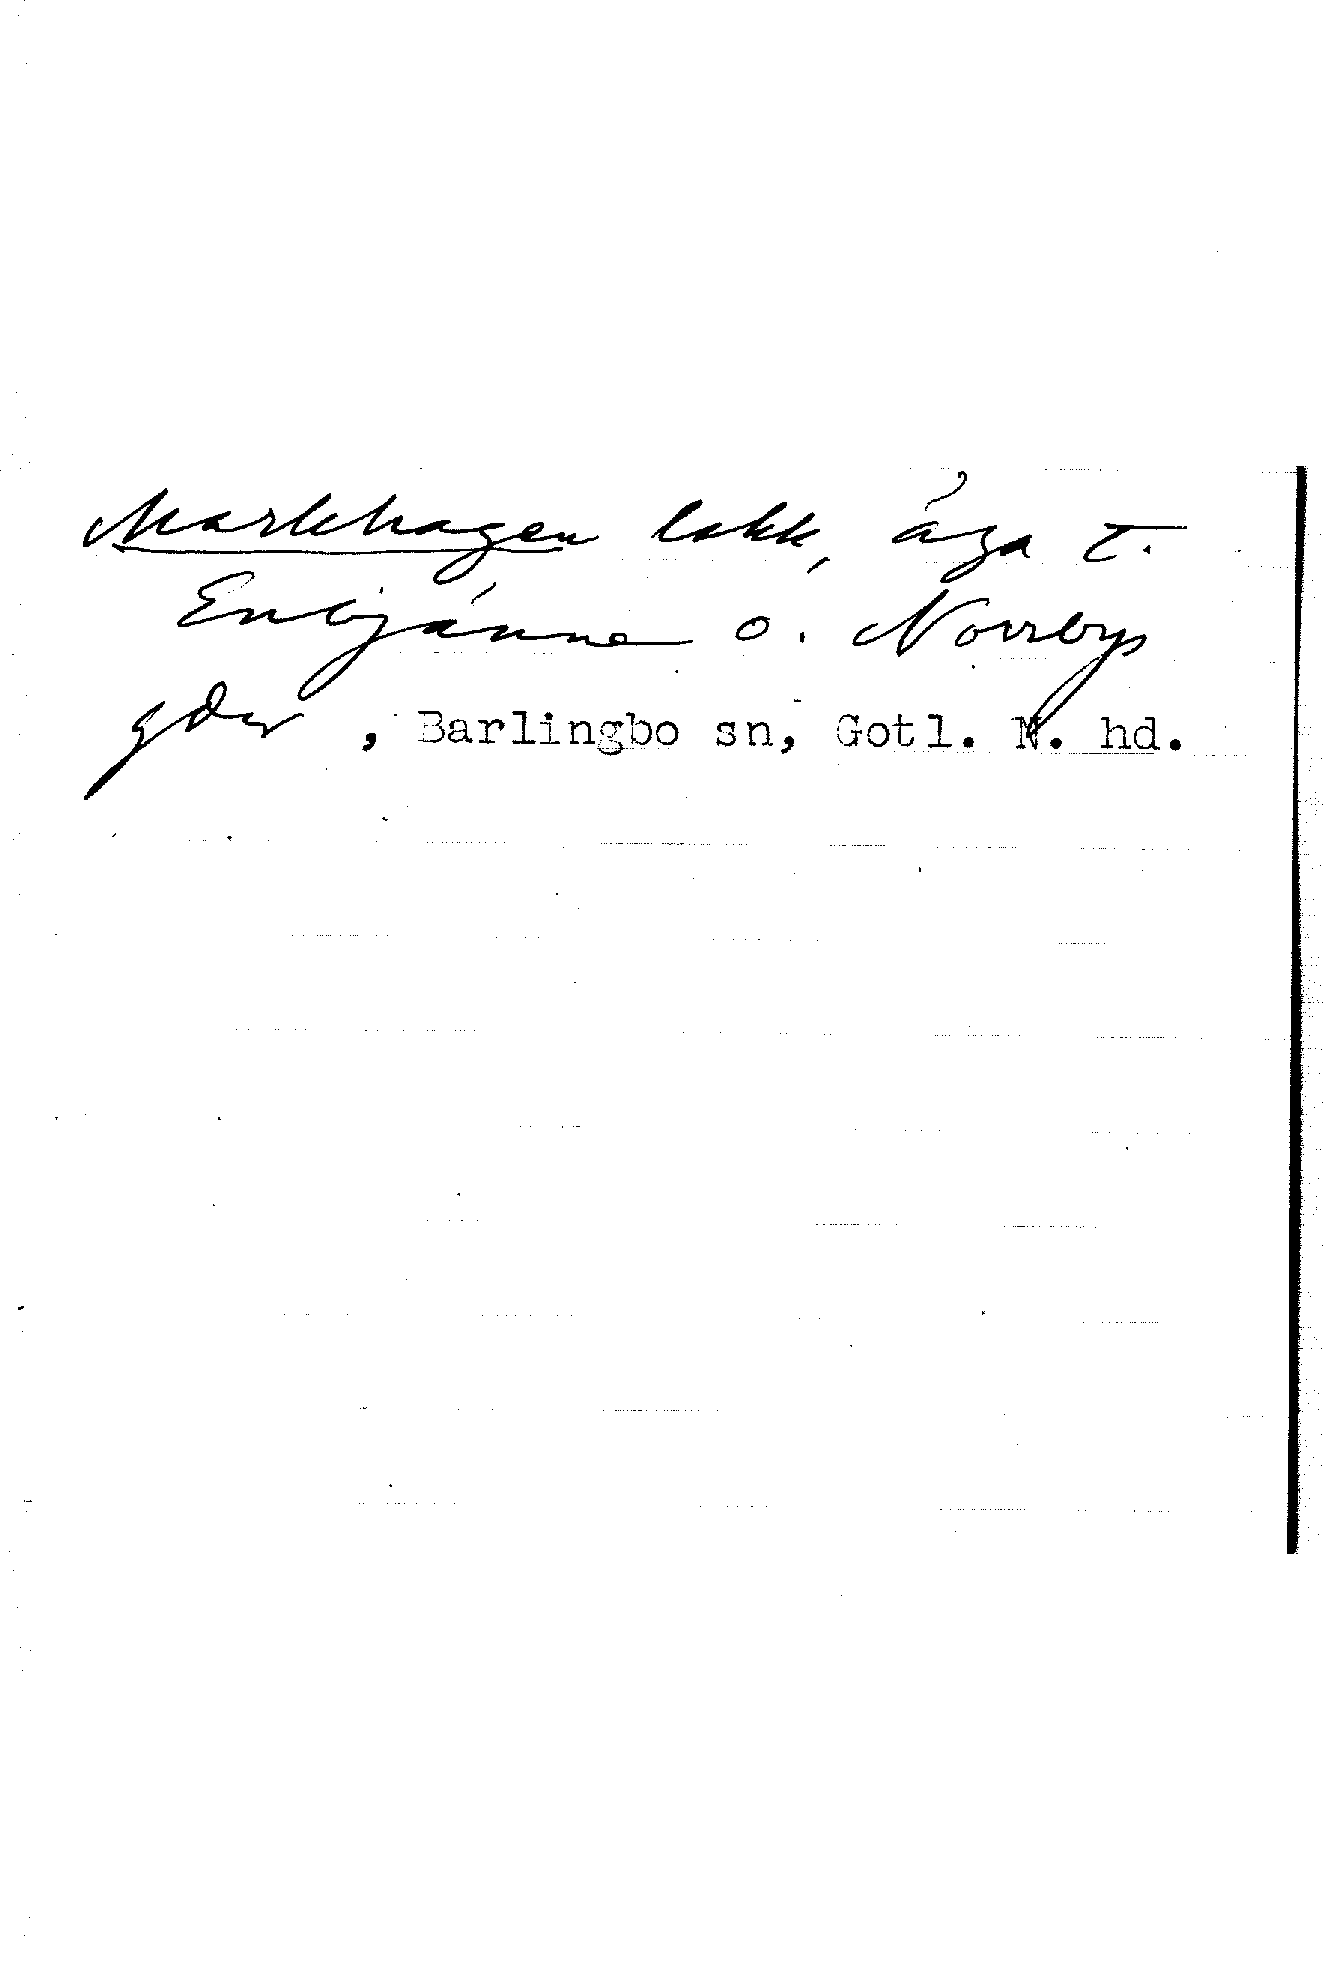 Markhagen lokk, äga t.
Enbjänne o. Norrbys
gdr, Barlingbo sn, Gotl. N. hd.